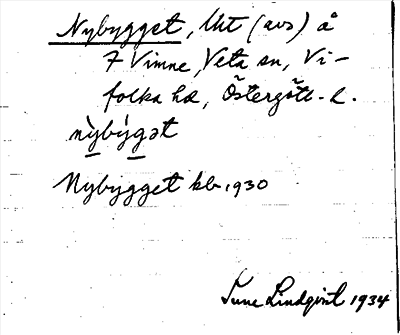 Nybygget, lht (avs) å
7 Vimne, Veta sn, Vi-
folka hd, Östergötl. l.
nỳbýgət
Nybygget kb. 1930
Sune Lindqvist 1934